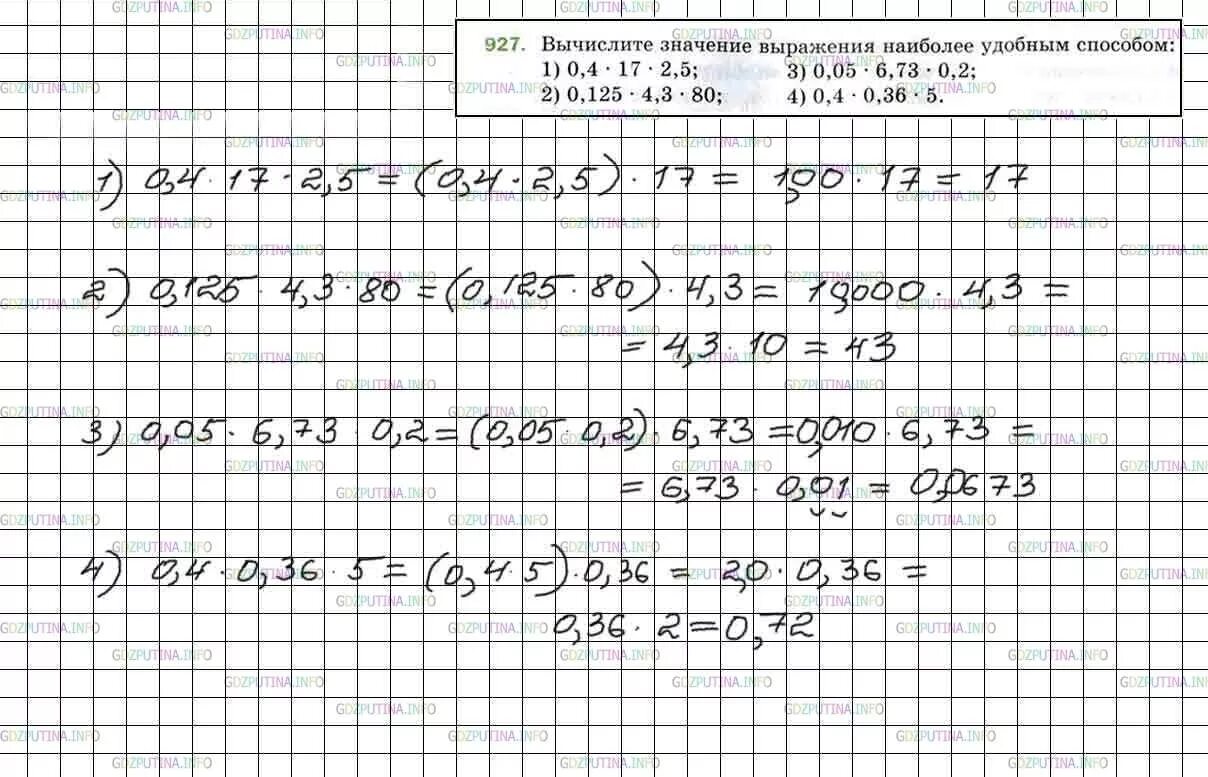 927. Вычислите значение выражения наиболее удобным способом:
1) 0,4 · 17 · 2,5; 3) 0,05 · 6,73 · 0,2;
2) 0,125 · 4,3 · 80; 4) 0,4 · 0,36 · 5.
1) 0,4 · 17 · 2,5 = (0,4 · 2,5) · 17 = 1,00 · 17 = 17
2) 0,125 · 4,3 · 80 = (0,125 · 80) · 4,3 = 10,000 · 4,3 =
= 4,3 · 10 = 43
3) 0,05 · 6,73 · 0,2 = (0,05 · 0,2) · 6,73 = 0,010 · 6,73 =
= 6,73 · 0,01 = 0,0673
4) 0,4 · 0,36 · 5 = (0,4 · 5) · 0,36 = 2,0 · 0,36 =
0,36 · 2 = 0,72
GDZPUTINA.INFO